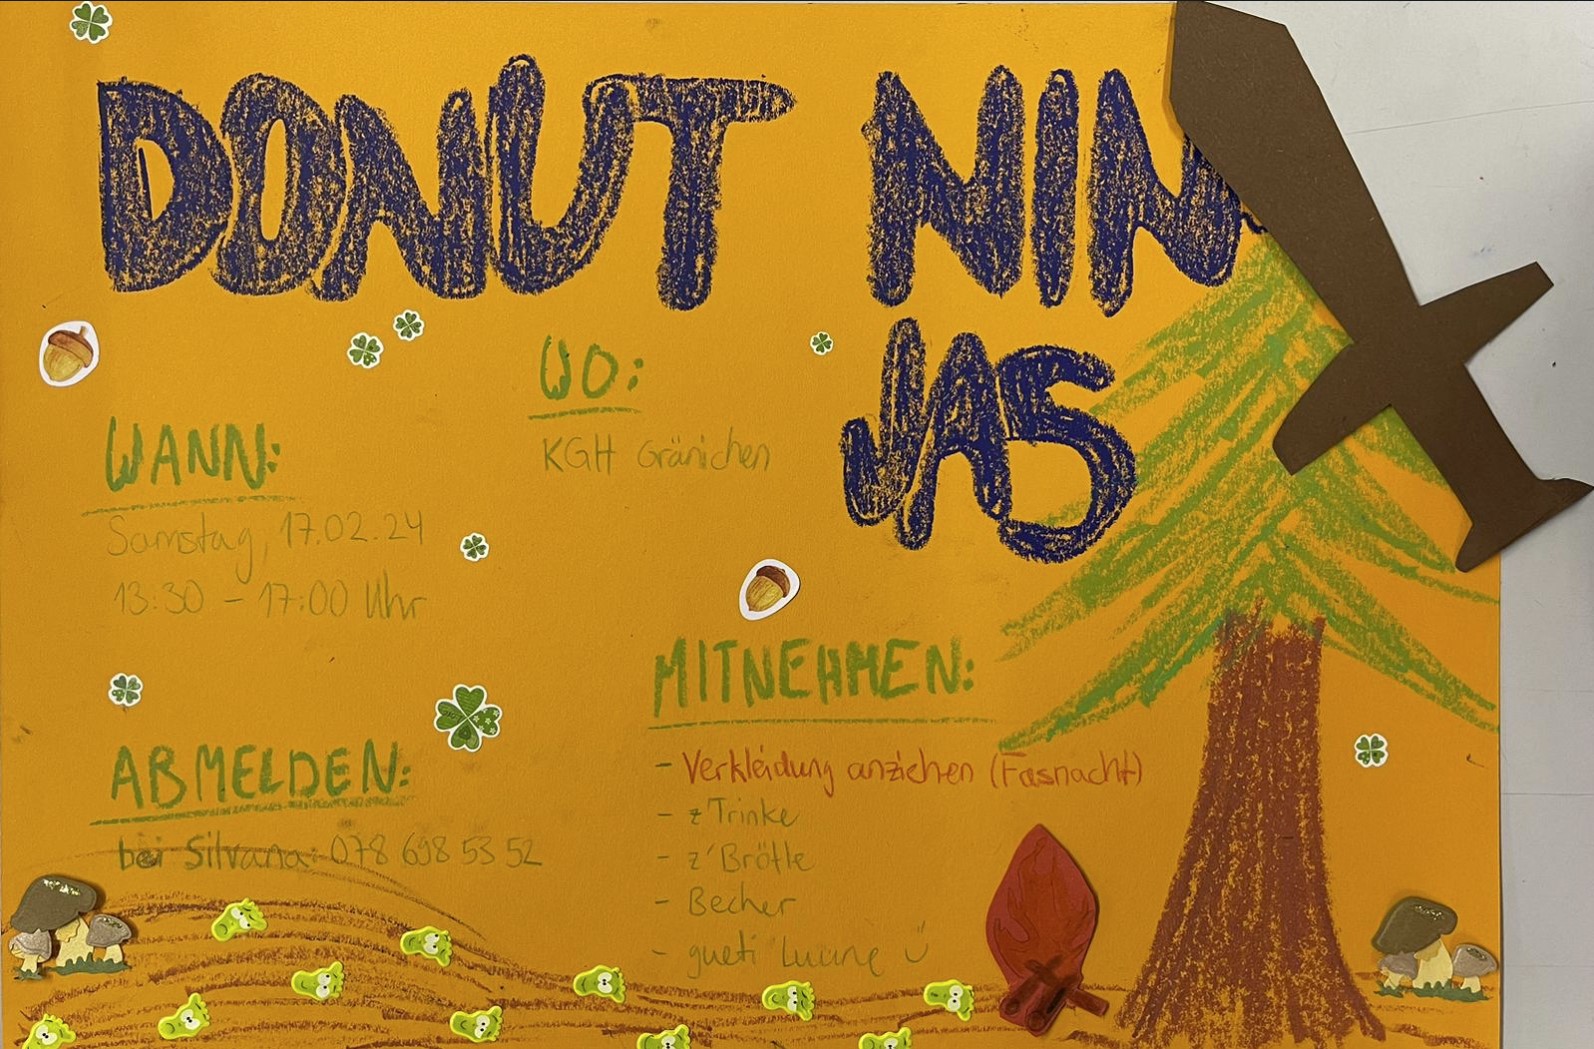 DONUT NIN
JAS
WO:
KGH Gränichen
WANN:
Samstag, 17.02.24
13:30 - 17:00 Uhr
MITNEHMEN:
- Verkleidung anziehen (Fasnacht)
- z'Trinke
- z'Brötle
- Becher
- gueti Luune
ABMELDEN:
bei Silvana: 078 698 53 52